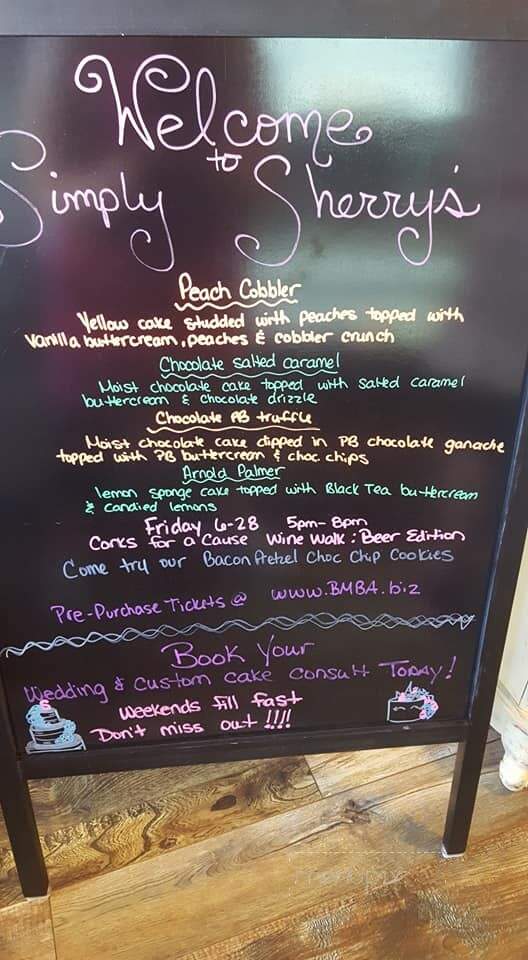 Welcome
to
Simply Sherry's
Peach Cobbler
Yellow cake studded with peaches topped with
Vanilla buttercream, peaches & cobbler crunch
Chocolate salted caramel
Moist chocolate cake topped with salted caramel
buttercream & chocolate drizzle
Chocolate PB truffle
Moist chocolate cake dipped in PB chocolate ganache
topped with PB buttercream & choc. chips
Arnold Palmer
lemon sponge cake topped with Black Tea buttercream
& candied lemons
Friday 6-28 5pm-8pm
Corks for a Cause Wine Walk: Beer Edition
Come try our Bacon Pretzel Choc Chip Cookies
Pre-Purchase Tickets @ www.BMBA.biz
Book Your
Wedding & Custom cake consult TODAY!
Weekends fill fast
Don't miss out !!!!